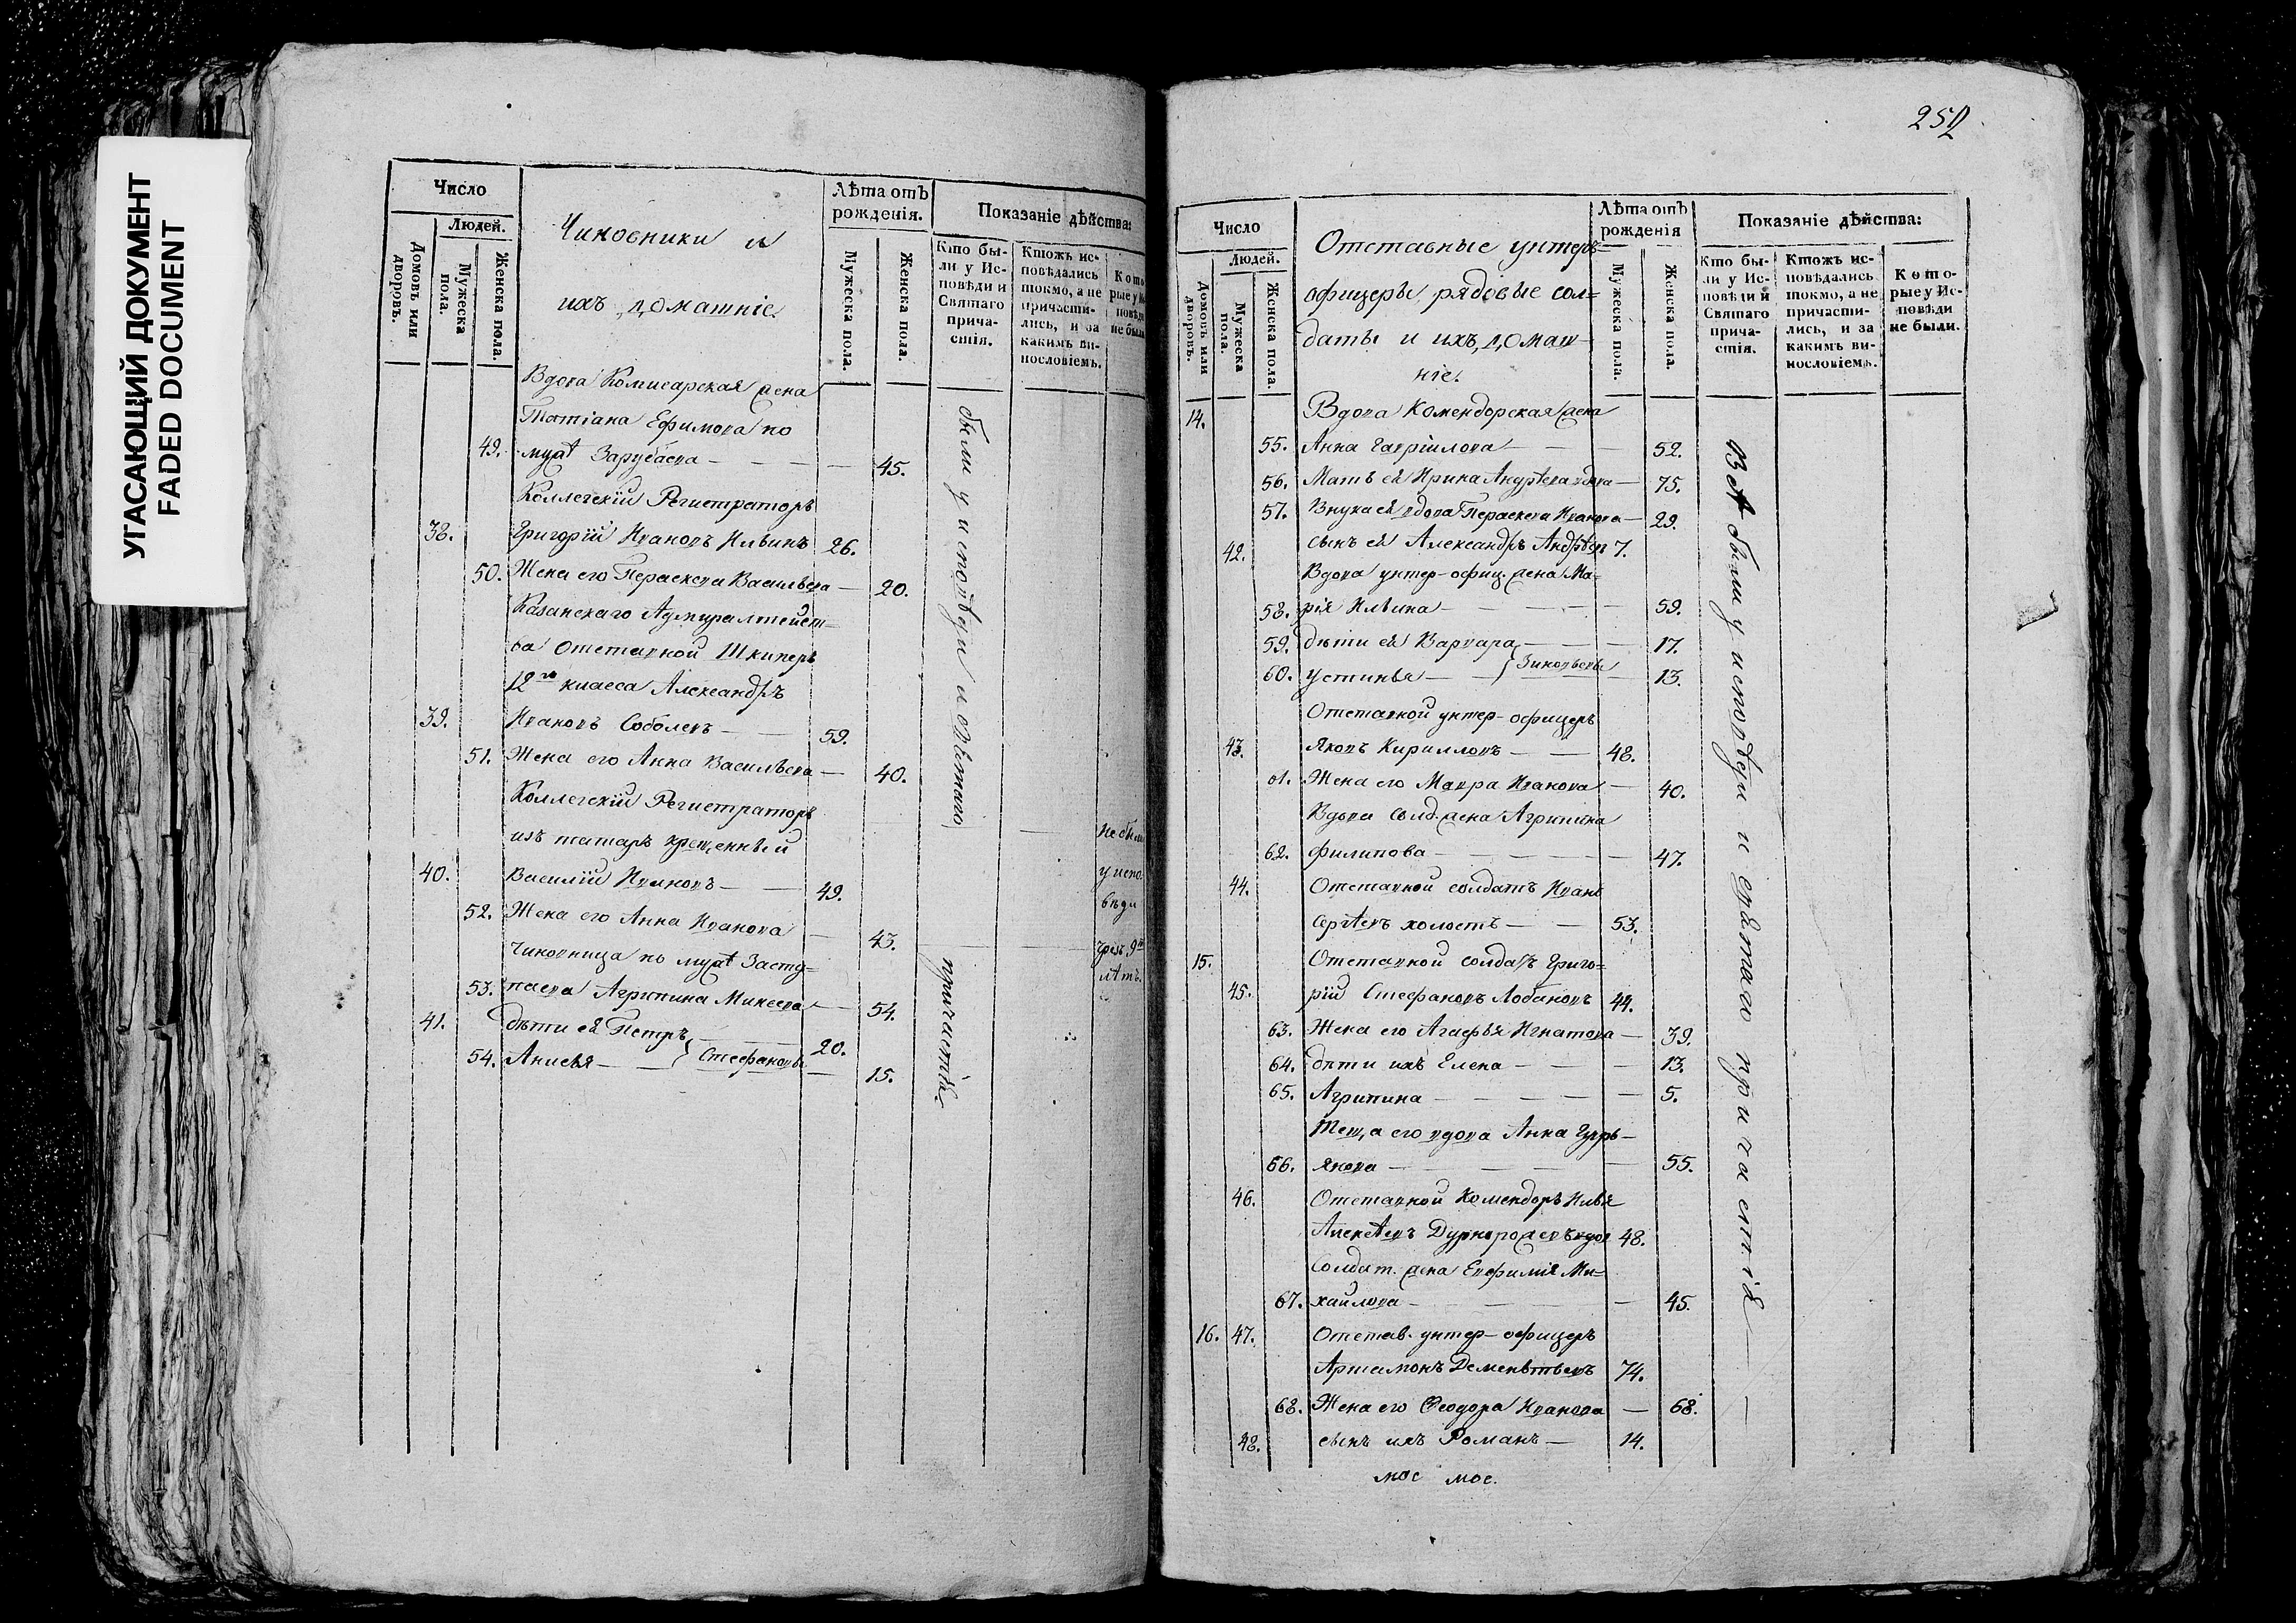 УГАСАЮЩИЙ ДОКУМЕНТ
FADED DOCUMENT
Число
Людей.
Домовъ или дворовъ.
Мужеска пола.
Женска пола.
Чиновники и
ихъ домашніе
Лѣта отъ рожденія.
Мужеска пола.
Женска пола.
Показаніе дѣйства:
Кто были у Исповѣди и Святаго причастія.
Ктожъ исповѣдались токмо, а не причастились, и за какимъ винословіемъ.
Вдова Комисарская жена
Татіана Ефимова по
49. мужѣ Зарубаева — — — 45.
Коллегскій Регистраторъ
38. Григорій Ивановъ Ильинъ 26.
50. Жена его Параскева Васильева — 20.
Казанскаго Адмиралтейст=
ва Отставной Шкиперъ
12го класса Александръ
39. Ивановъ Соболевъ — 59.
51. Жена его Анна Васильева — 40.
Коллегскій Регистраторъ
изъ татаръ крещенный
40. Василій Ивановъ — — 49.
52. Жена его Анна Иванова — 43.
Чиновница по мужѣ Засту=
53. паева Агрипина Микеева — 54.
41. дѣти ея Петръ — 20.
54. Анисья — } Стефановы — 15.
были у исповѣди и святаго причастія
не были
у испо
вѣди
чрезъ 9ть
лѣтъ.
252
Число
Людей.
Домовъ или дворовъ.
Мужеска пола.
Женска пола.
Отставные унтеръ=
офицеры, рядовые сол=
даты и ихъ домаш=
ніе.
Лѣта отъ рожденія
Мужеска пола.
Женска пола.
Показаніе дѣйства:
Кто были у Исповѣди и Святаго причастія.
Ктожъ исповѣдались токмо, а не причастились, и за какимъ винословіемъ.
Которые у Исповѣди не были.
14. Вдова Комендорская жена
55. Анна Гавріилова — — — 52.
56. Мать ея Ирина Андрѣева вдова — 75.
57. Внука ея вдова Параскева Иванова — 29.
42. сынъ ея Александръ Андрѣевъ 7.
Вдова унтер-офиц. жена Ма=
58. рія Ильина — — — — 59.
59. дѣти ея Варвара — — 17.
60. Устинья — — } Зиновьевы — 13.
Отставной унтер-офицеръ
43. Яковъ Кириловъ — — 48.
61. Жена его Мавра Иванова — 40.
Вдова Солд. жена Агрипина
62. Филипова — — — — — 47.
44. Отставной солдатъ Иванъ
Сергѣевъ холостъ — — 53.
15. Отставной солдатъ Григо=
45. рій Стефановъ Лобановъ 44.
63. Жена его Агафья Игнатова — 39.
64. дѣти ихъ Елена — — — 13.
65. Агрипина — — — — — 5.
Теща его вдова Анна Гурь—
66. янова — — — — 55.
46. Отставной Комендоръ Илья
Алексѣевъ 48.
Солдат. жена Евфимія Ми=
67. хайлова — — — — 45.
16. 47. Отстав. унтер-офицеръ
Артамонъ Дементьевъ 74.
68. Жена его Ѳеодора Иванова — 68.
48. сынъ ихъ Романъ — 14.
всѣ были у исповѣди и святаго причастія — —